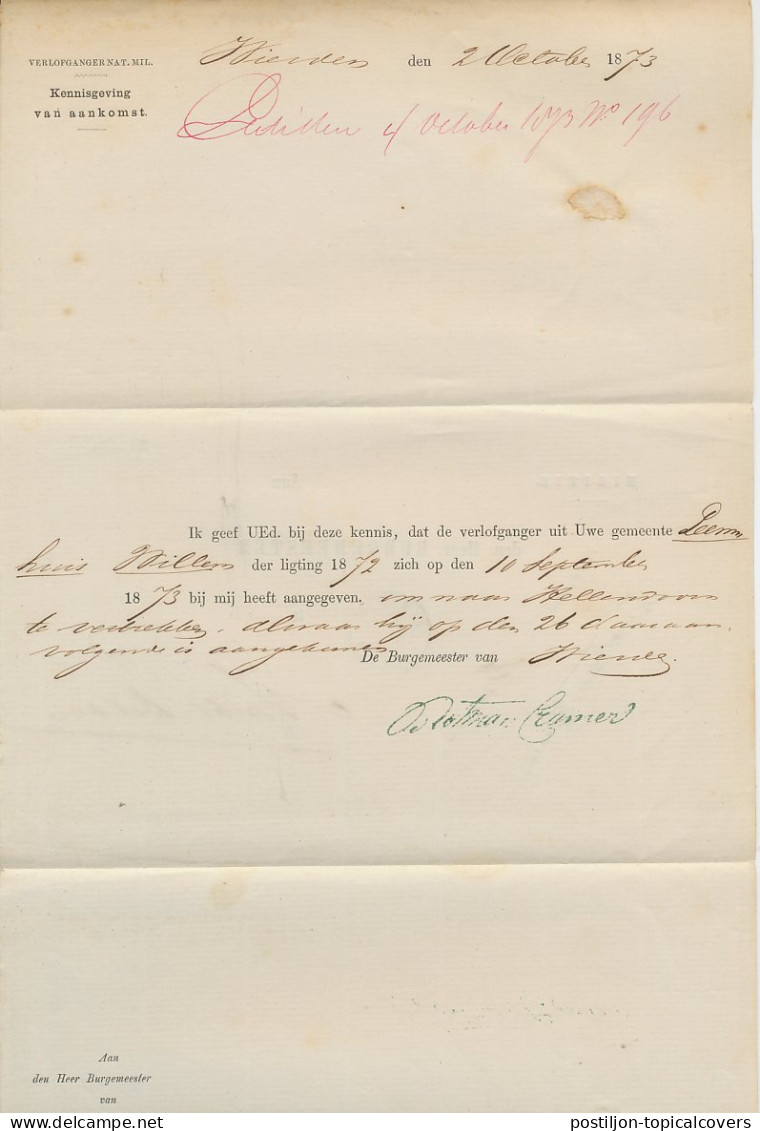 VERLOFGANGER NAT. MIL.
Kennisgeving
van aankomst.
Wierden den 2 October 1873
4 October 1873 No 196
Ik geef UEd. bij deze kennis, dat de verlofganger uit Uwe gemeente
huis Willem der ligting 1872 zich op den 10 September
1873 bij mij heeft aangegeven, om naar Hellendoorn
te vertrekken, alwaar hij op den 26 daaraan
volgende is aangekomen
De Burgemeester van Wierden.
Cramer
Aan
den Heer Burgemeester
van
postiljon-topicalcovers
Delcampe.net